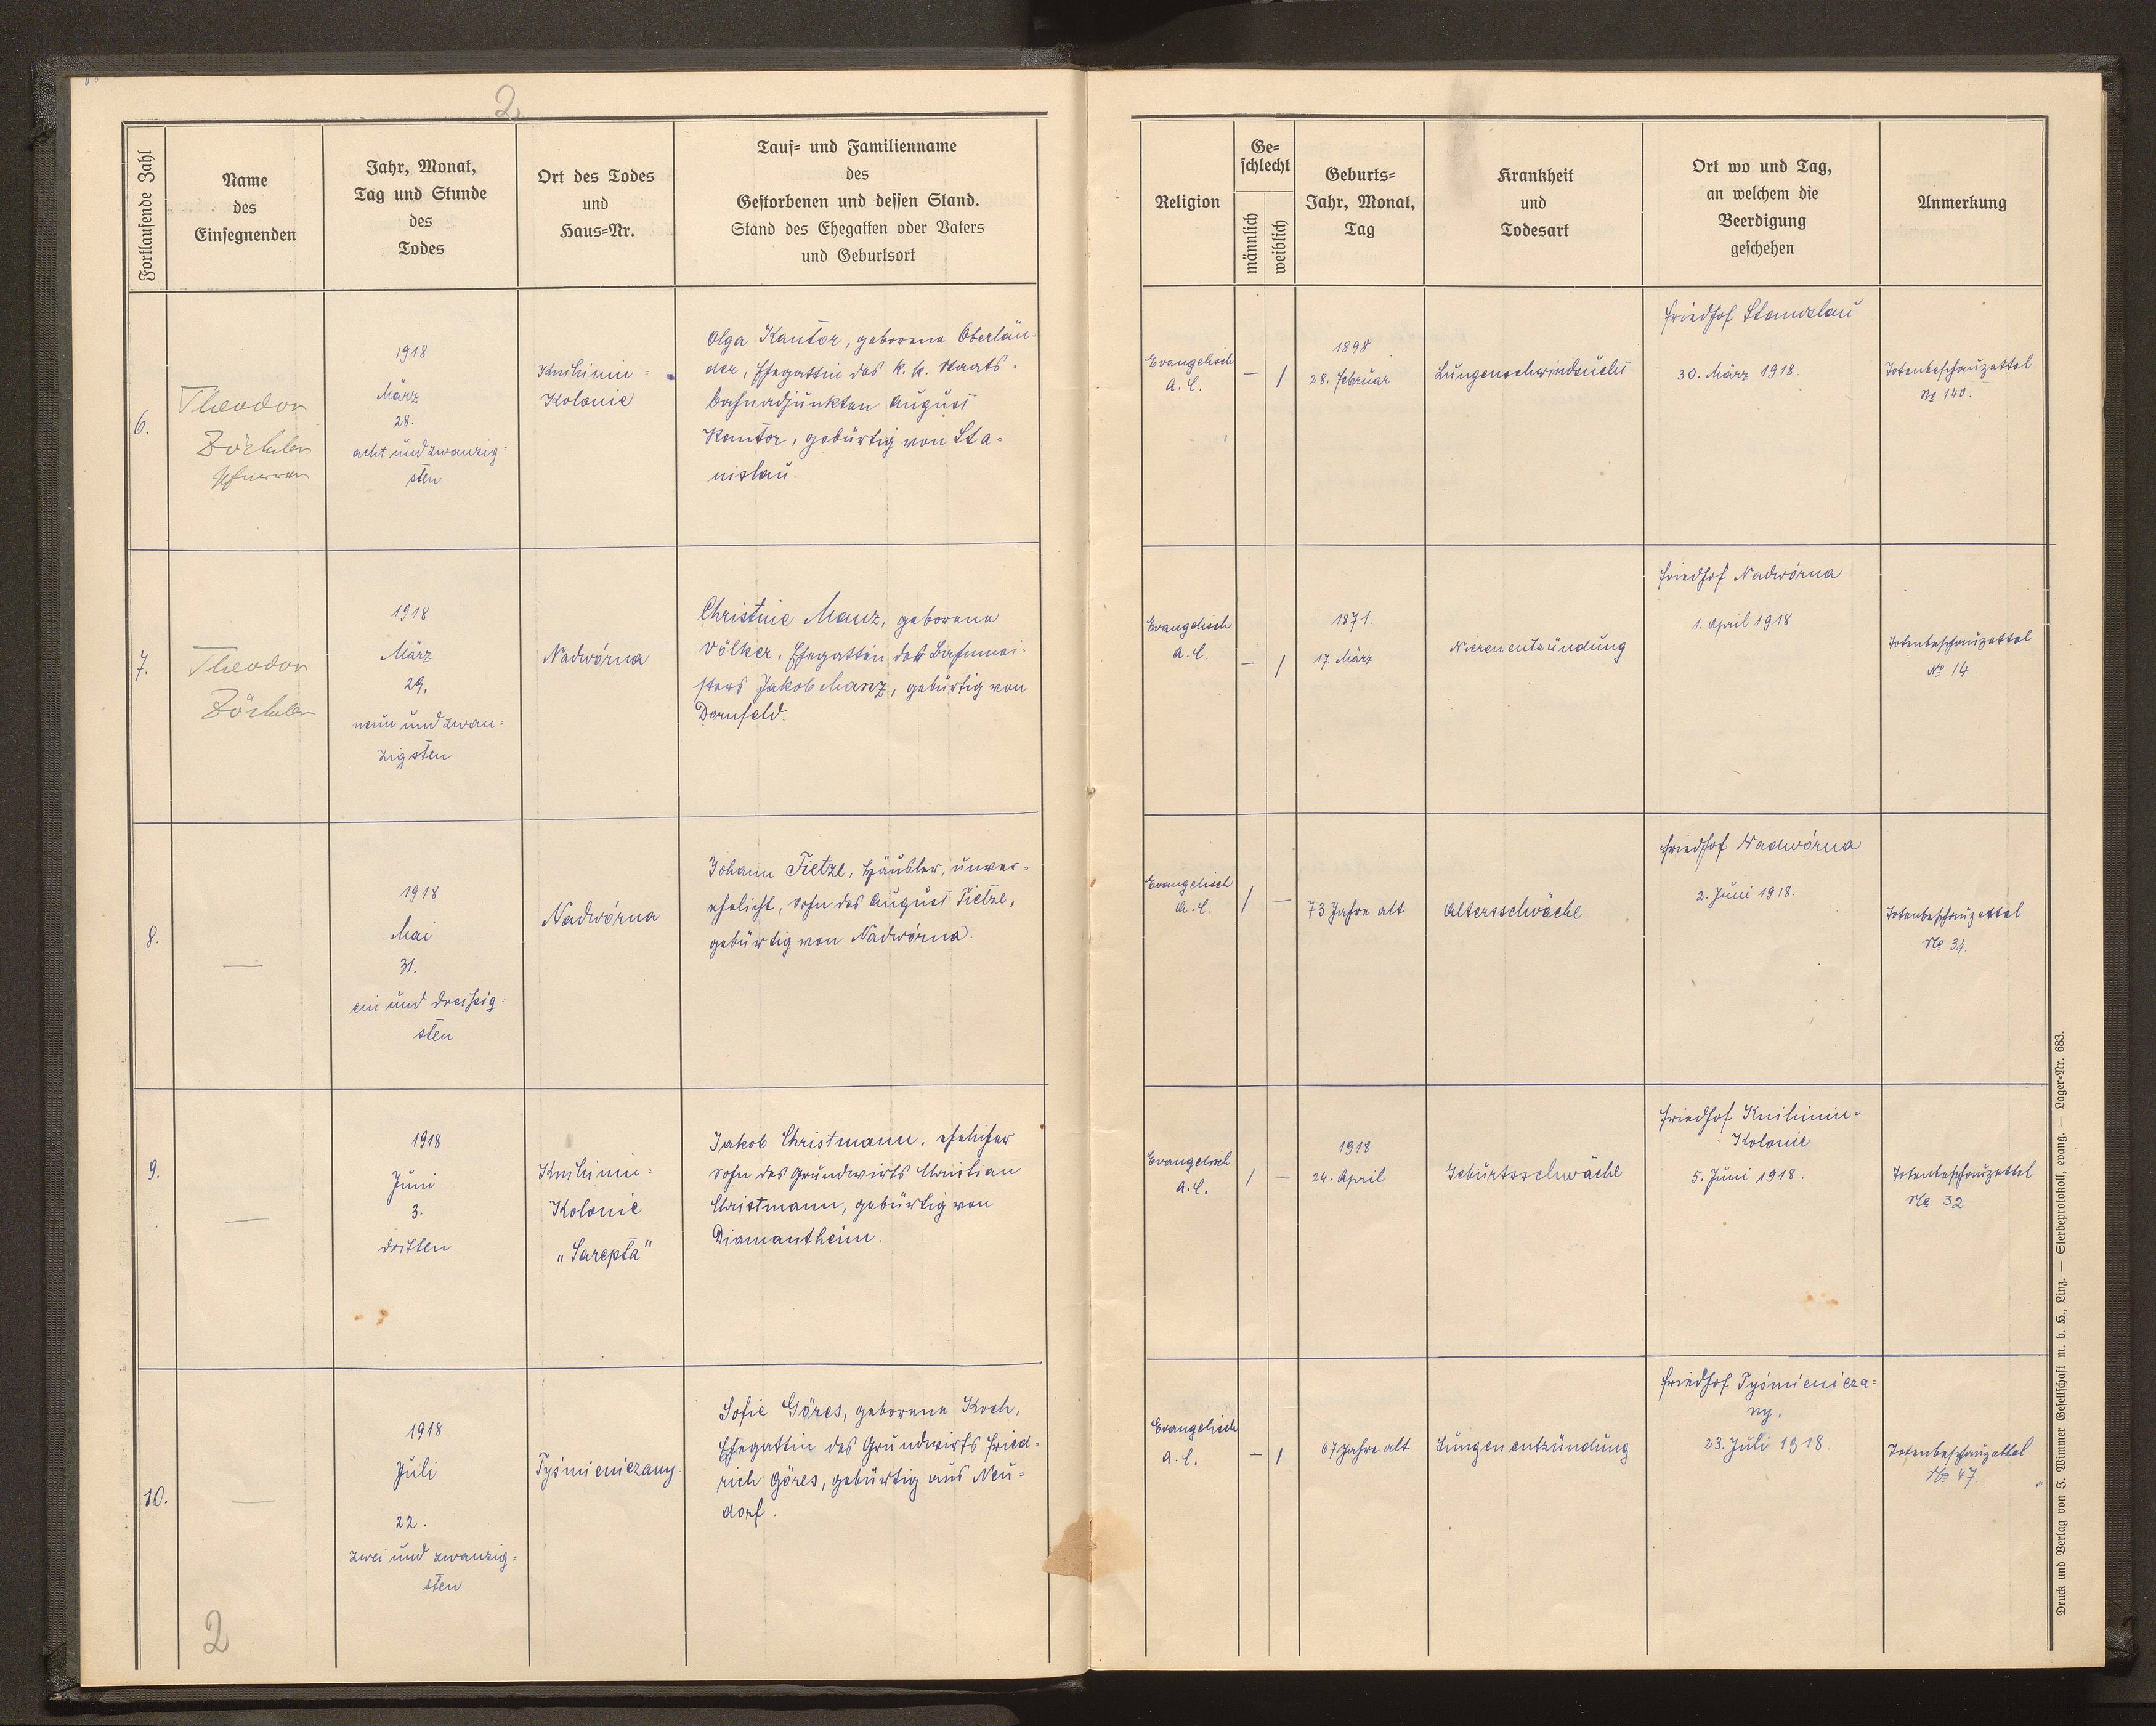 2
Fortlaufende Zahl
Name
des
Einsegnenden
Jahr, Monat,
Tag und Stunde
des
Todes
Ort des Todes
und
Haus=Nr.
Tauf= und Familienname
des
Gestorbenen und dessen Stand.
Stand des Ehegatten oder Vaters
und Geburtsort
Religion
Ge=
schlecht
männlich
weiblich
Geburts=
Jahr, Monat,
Tag
Krankheit
und
Todesart
Ort wo und Tag,
an welchem die
Beerdigung
geschehen
Anmerkung
6.
Theodor
Zöckler
Pfarrer
1918
März
28.
acht und zwanzig=
sten
Knihinin=
Kolonie
Olga Kantor, geborene Oberlän=
der, Ehegattin des k. k. Staats=
bahnadjunkten August
Kantor, gebürtig von Sta=
nislau.
Evangelisch
A.C.
— 1
1898
28. Februar
Lungenschwindsucht
Friedhof Stanislau
30. März 1918.
Totenbeschauzettel
№ 140.
7.
Theodor
Zöckler
1918
März
29.
neun und zwan=
zigsten
Nadwórna
Christine Manz, geborene
Völker, Ehegattin des Bahnmei=
sters Jakob Manz, gebürtig von
Dornfeld.
Evangelisch
A.C.
— 1
1871.
17. März
Nierenentzündung
Friedhof Nadwórna
1. April 1918
Totenbeschauzettel
№ 14
8.
—
1918
Mai
31.
ein und dreißig=
sten
Nadwórna
Johann Tietze, Häusler, unver=
ehelicht, Sohn des August Tietze,
gebürtig von Nadwórna.
Evangelisch
A.C.
1 —
73 Jahre alt
Altersschwäche
Friedhof Nadwórna
2. Juni 1918.
Totenbeschauzettel
№ 31.
9.
—
1918
Juni
3.
dritten
Knihinin=
Kolonie
„Sarepta"
Jakob Christmann, ehelicher
Sohn des Grundwirts Christian
Christmann, gebürtig von
Diamantheim.
Evangelisch
A.C.
1 —
1918
24. April
Geburtsschwäche
Friedhof Knihinin=
Kolonie
5. Juni 1918.
Totenbeschauzettel
№ 32
10.
—
1918
Juli
22.
zwei und zwanzig=
sten
Tyśmieniczany
Sofie Göres, geborene Koch,
Ehegattin des Grundwirts Fried=
rich Göres, gebürtig aus Neu=
dorf.
Evangelisch
A.C.
— 1
67 Jahre alt
Lungenentzündung
Friedhof Tyśmienicza=
ny.
23. Juli 1918.
Totenbeschauzettel
№ 47
2
Druck und Verlag von J. Wimmer Gesellschaft m. b. H., Linz. — Sterbeprotokoll, evang. — Lager=Nr. 683.